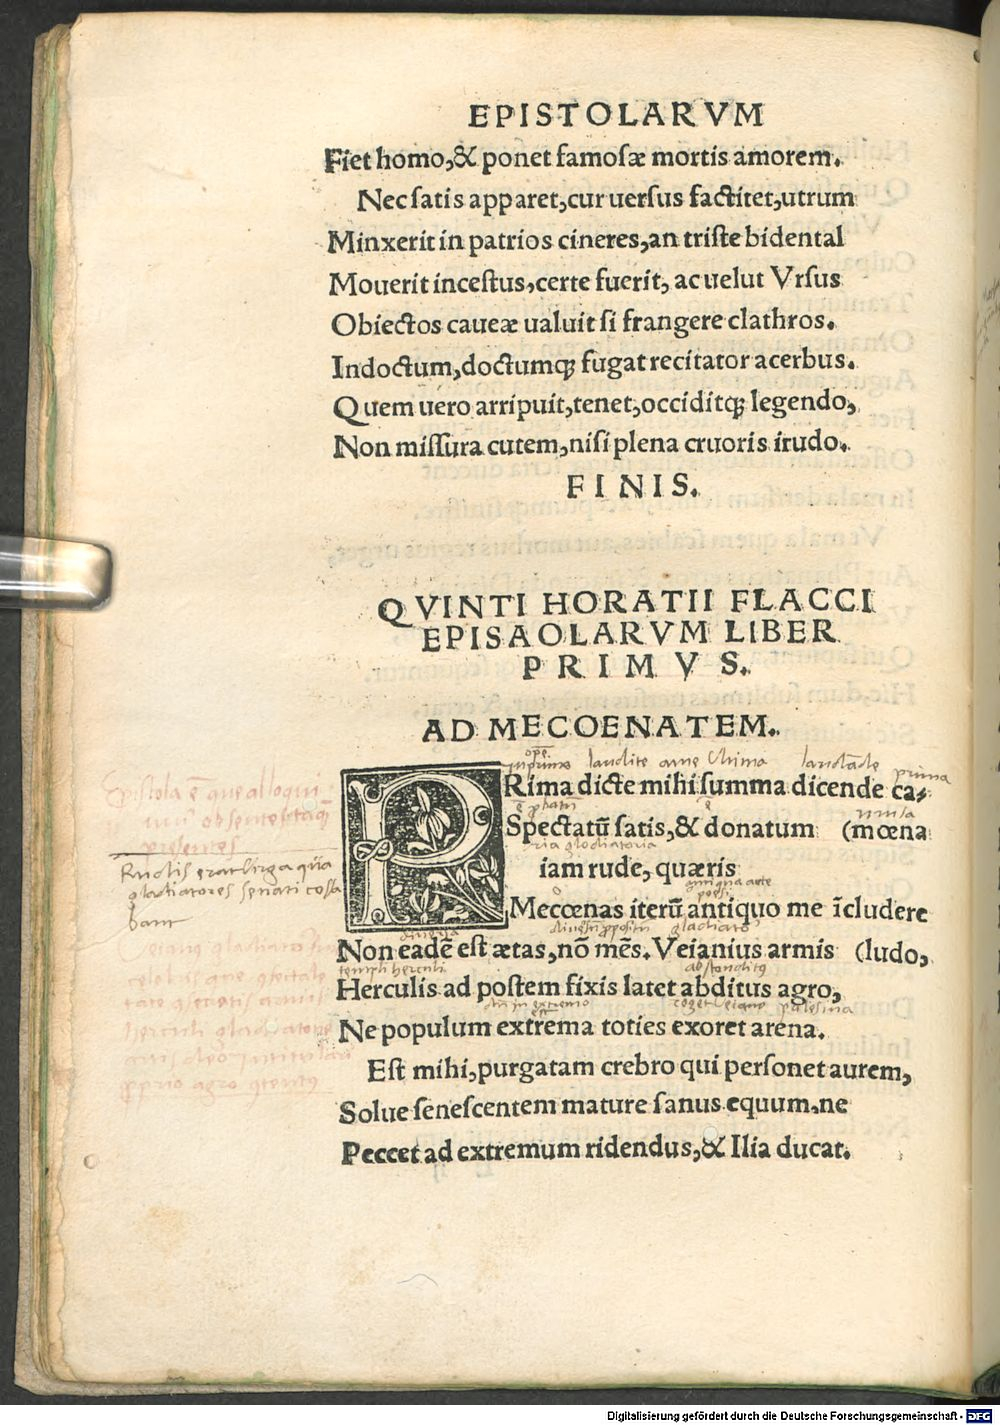 EPISTOLARVM
Fiet homo,& ponet famosæ mortis amorem.
Nec satis apparet,cur uersus factitet,utrum
Minxerit in patrios cineres,an triste bidental
Mouerit incestus,certe fuerit, ac uelut Vrsus
Obiectos caueæ ualuit si frangere clathros.
Indoctum,doctumqꝫ fugat recitator acerbus.
Quem uero arripuit,tenet,occiditqꝫ legendo,
Non missura cutem,nisi plena cruoris irudo.
FINIS.
QVINTI HORATII FLACCI
EPISAOLARVM LIBER
PRIMVS.
AD MECOENATEM.
laudite arne Ultima
prima
PRima dicte mihi summa dicende ca,
musa
Spectatū satis,& donatum (mœna
ria gladiatoria
iam rude, quæris
antiqua arte
Mecœnas iterū antiquo me īcludere
diuersa
Non eadē est ætas,nō mēs. Veianius armis (ludo,
templi herculi
Herculis ad postem fixis latet abditus agro,
Ne populum extrema toties exoret arena.
Est mihi,purgatam crebro qui personet aurem,
Solue senescentem mature sanus equum,ne
Peccet ad extremum ridendus,& Ilia ducat.
Epistola ē que alloqui
presentes
Rudis erat uirga qua
gladiatores
bant
herculi gladiatore
proprio agro
Digitalisierung gefördert durch die Deutsche Forschungsgemeinschaft - DFG